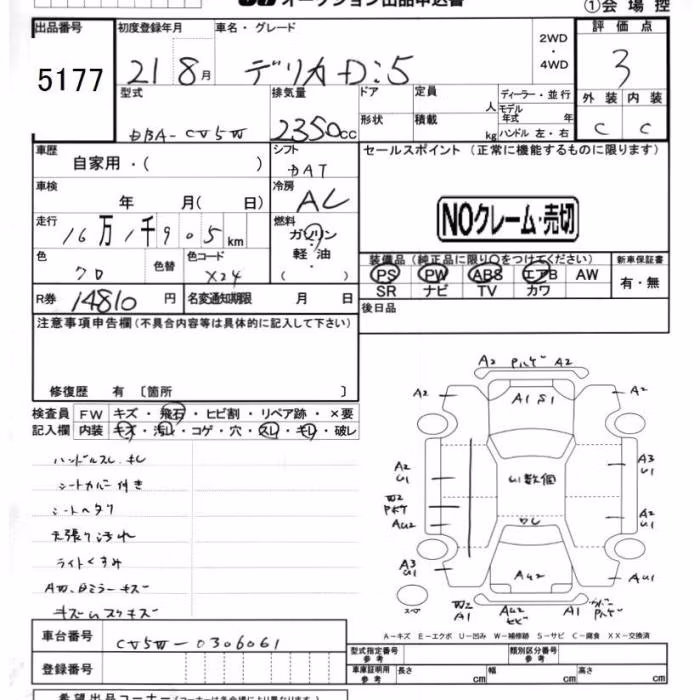 オークション出品申込書
①会場控
出品番号 初度登録年月 車名・グレード 2WD・4WD 評価点
5177 21 8月 デリカD:5 3
型式 排気量 ドア 定員 人 ディーラー・並行 外装 内装
DBA-CV5W 2350cc 形状 積載 kg モデル年式 年 ハンドル 左・右 C C
車歴 自家用・( ) シフト セールスポイント (正常に機能するものに限ります)
DAT
車検 年 月( 日) 冷房 AC
NOクレーム・売切
走行 16万1千905km 燃料 ガソリン・軽油・( )
装備品(純正品に限り○をつけてください) 新車保証書
色 クロ 色替 色コード X24
PS PW ABS エアB AW 有・無
SR ナビ TV カワ
R券 14810円 名変通知期限 月 日 後日品
注意事項申告欄(不具合内容等は具体的に記入して下さい)
修復歴 有 〔箇所 〕
検査員 FW キズ・飛石・ヒビ割・リペア跡・×要
記入欄 内装 キズ・汚レ・コゲ・穴・スレ・キレ・破レ
ハンドルスレ キレ
シートカバー付き
シートヘタリ
天張り汚れ
ライトくすみ
AW、Dミラーキズ
A2 A2
A2 A1 S1 A2
U1数個
A2 U1
W2
AU2
A3 U1
A2 U1
A3 U1
AU2
AU1
W2 A1
AU2
A1
A-キズ E-エクボ U-凹み W-補修跡 S-サビ C-腐食 XX-交換済
車台番号 CV5W-0306061
登録番号
型式指定番号 参考 類別区分番号 参考
車庫証明用 参考 長さ cm 幅 cm 高さ cm
希望出品コーナー